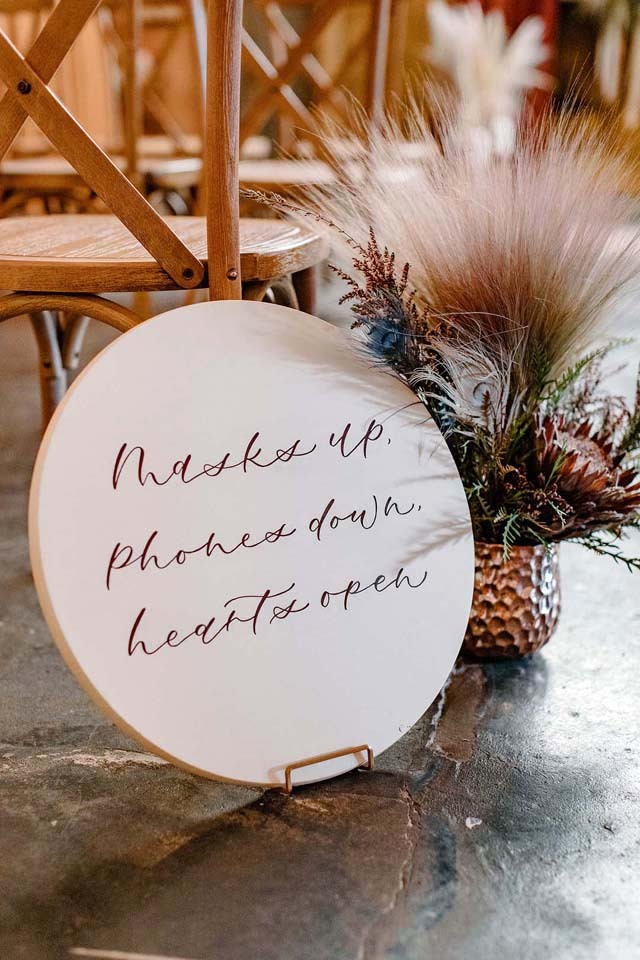 Masks up,
phones down,
hearts open